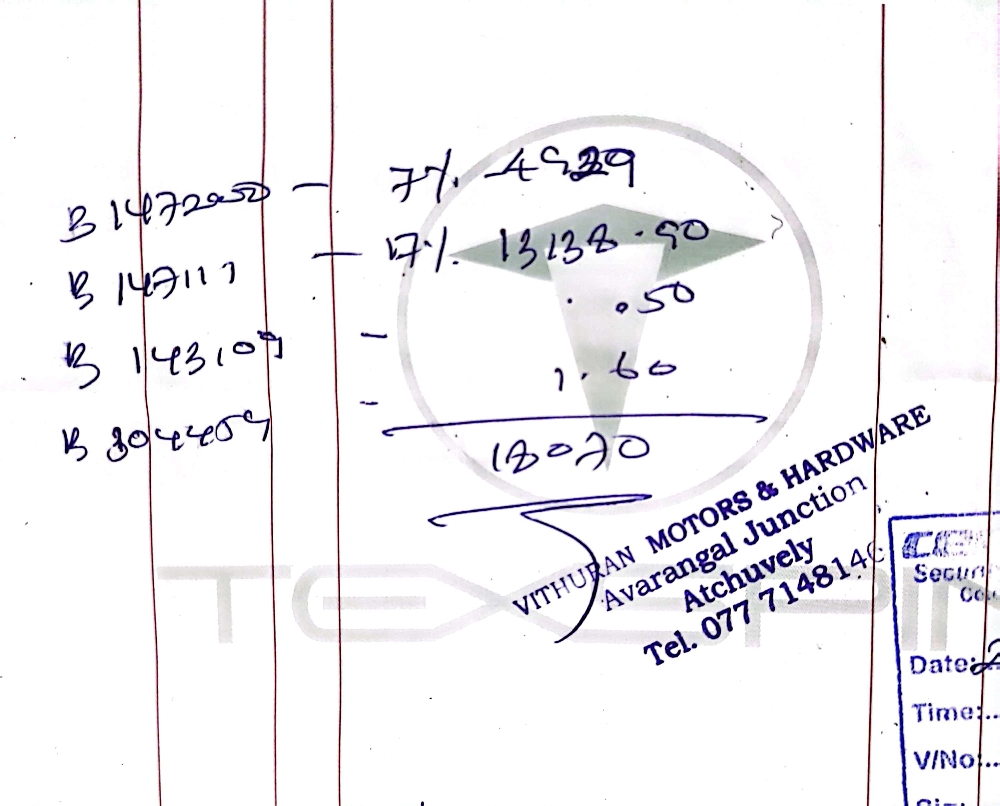 B 1472050 — 7%. 4929
B 147111 — 17%. 13138.90
.50
B 143109 –
1.60
B 304404 –
18070
VITHURAN MOTORS & HARDWARE
Avarangal Junction
Atchuvely
Tel. 077 714814
Secur
Date:2
Time:..
V/No:..